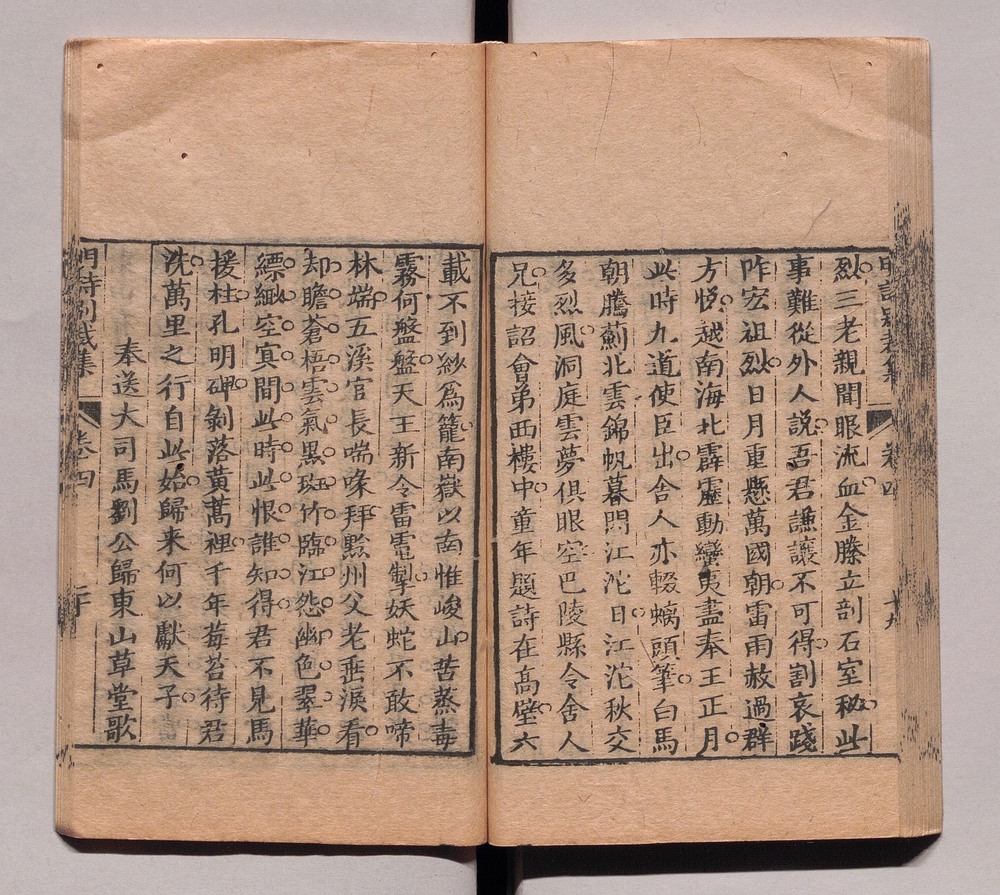 明詩別裁集 卷四 十九
烈三老親聞眼流血金縢立剖石室秘此
事難從外人說吾君謙讓不可得割哀踐
阼宏祖烈日月重懸萬國朝雷雨赦過群
方悅越南海北霹靂動蠻夷盡奉王正月
此時九道使臣出舍人亦輟螭頭筆白馬
朝騰薊北雲錦帆暮閃江沱日江沱秋交
多烈風洞庭雲夢俱眼空巴陵縣令舍人
兄接詔會弟西樓中童年題詩在高壁六
載不到紗爲籠南嶽以南惟峻山苦蒸毒
霧何盤盤天王新令雷電掣妖蛇不敢啼
林端五溪官長喘喙拜黔州父老垂淚看
却瞻蒼梧雲氣黑斑竹臨江怨幽色翠華
縹緲空寅間此時此恨誰知得君不見馬
援柱孔明碑剝落黃蒿裡千年莓苔待君
洗萬里之行自此始歸来何以獻天子
奉送大司馬劉公歸東山草堂歌
明詩別裁集 卷四 二十